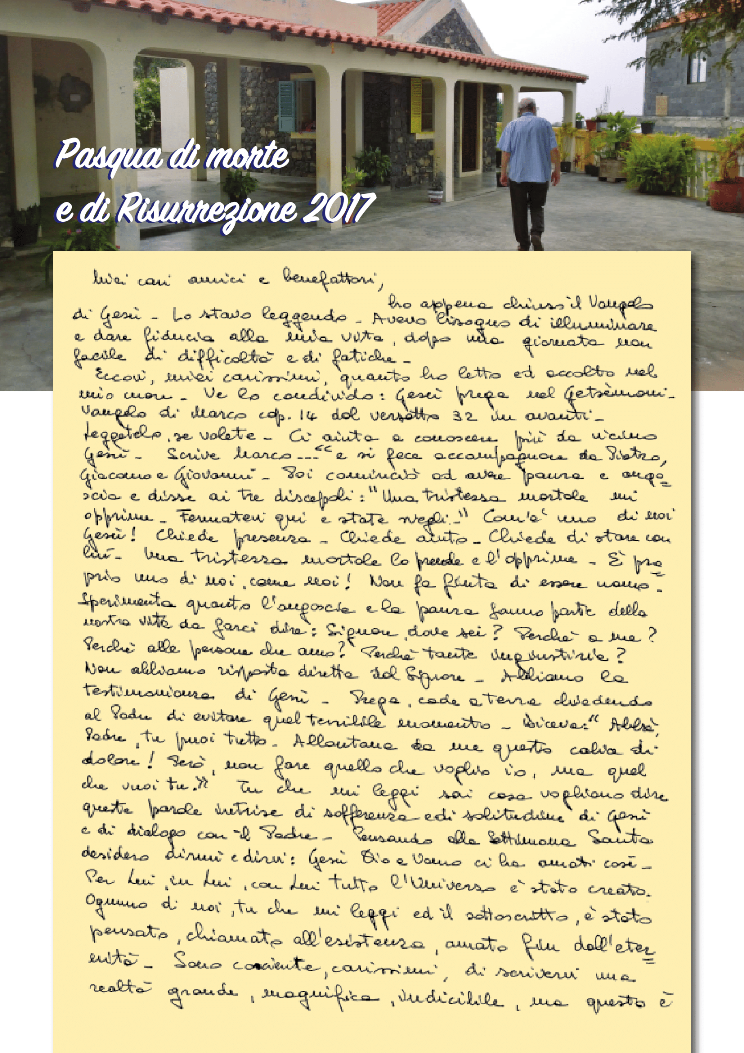 Pasqua di morte
e di Risurrezione 2017
Miei cari amici e benefattori,
ho appena chiuso il Vangelo
di Gesù - Lo stavo leggendo - Avevo bisogno di illuminare
e dare fiducia alla mia vita, dopo una giornata non
facile di difficoltà e di fatiche -
Eccovi, miei carissimi, quanto ho letto ed accolto nel
mio cuore - Ve lo condivido: Gesù prega nel Getsèmani -
Vangelo di Marco cap. 14 dal versetto 32 in avanti -
Leggetelo, se volete - Ci aiuta a conoscere più da vicino
Gesù - Scrive Marco --- "e si fece accompagnare da Pietro,
Giacomo e Giovanni - Poi cominciò ad avere paura e ango=
scia e disse ai tre discepoli: "Una tristezza mortale mi
opprime - Fermatevi qui e state svegli -" Com'è uno di noi
Gesù! Chiede presenza - Chiede aiuto - Chiede di stare con
lui - Una tristezza mortale lo prende e l'opprime - È pro=
prio uno di noi, come noi! Non fa finta di essere uomo -
Sperimenta quanto l'angoscia e la paura fanno parte della
nostra vita da farci dire: Signore, dove sei? Perchè a me?
Perchè alle persone che amo? Perchè tante ingiustizie?
Non abbiamo risposta diretta dal Signore - Abbiamo la
testimonianza di Gesù - Prega, cade a terra chiedendo
al Padre di evitare quel terribile momento - Diceva: "Abbà,
Padre, tu puoi tutto - Allontana da me questo calice di
dolore! Però, non fare quello che voglio io, ma quel
che vuoi tu." Tu che mi leggi sai cosa vogliono dire
queste parole intrise di sofferenza e di solitudine di Gesù
e di dialogo con il Padre - Pensando alla Settimana Santa
desidero dirmi e dirvi: Gesù Dio e Uomo ci ha amati così -
Per Lui, in Lui, con Lui tutto l'Universo è stato creato.
Ognuno di noi, tu che mi leggi ed il sottoscritto, è stato
pensato, chiamato all'esistenza, amato fin dall'eter=
nità - Sono cosciente, carissimi, di scrivervi una
realtà grande, magnifica, indicibile, ma questo è